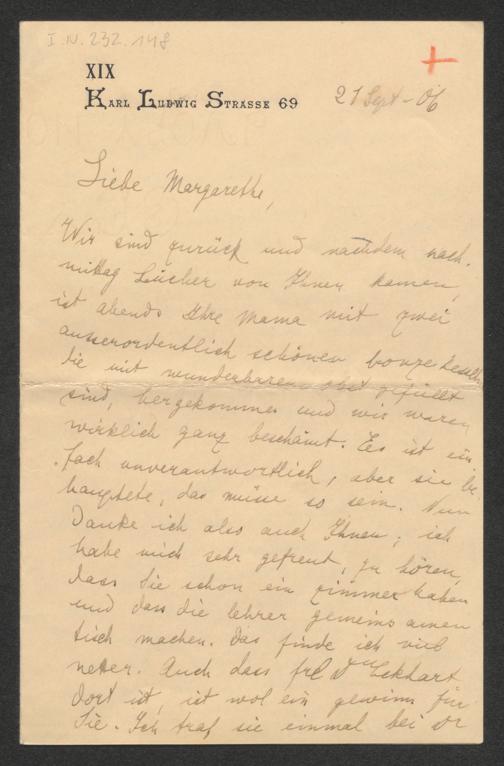 I. N. 232.148
XIX
KARL LUDWIG STRASSE 69
21 Sept - 06
Liebe Margarethe,
Wir sind zurück und nachdem nach-
mittag Bücher von Ihnen kamen,
ist abends Ihre Mama mit zwei
ausserordentlich schönen bonze kesseln
die mit wunderbarem obst gefüllt
sind, hergekommen und wir waren
wirklich ganz beschämt. Es ist ein
fach unverantwortlich, aber sie be-
hauptete, das müsse so sein. Nun
Danke ich also auch Ihnen; ich
habe mich sehr gefreut, zu hören,
dass Sie schon ein zimmer haben
und dass die lehrer gemeinsamen
tisch machen. Das finde ich viel
netter. Auch dass frl Dr Eckhart
dort ist, ist wol ein gewinn für
Sie. Ich traf sie einmal bei Dr